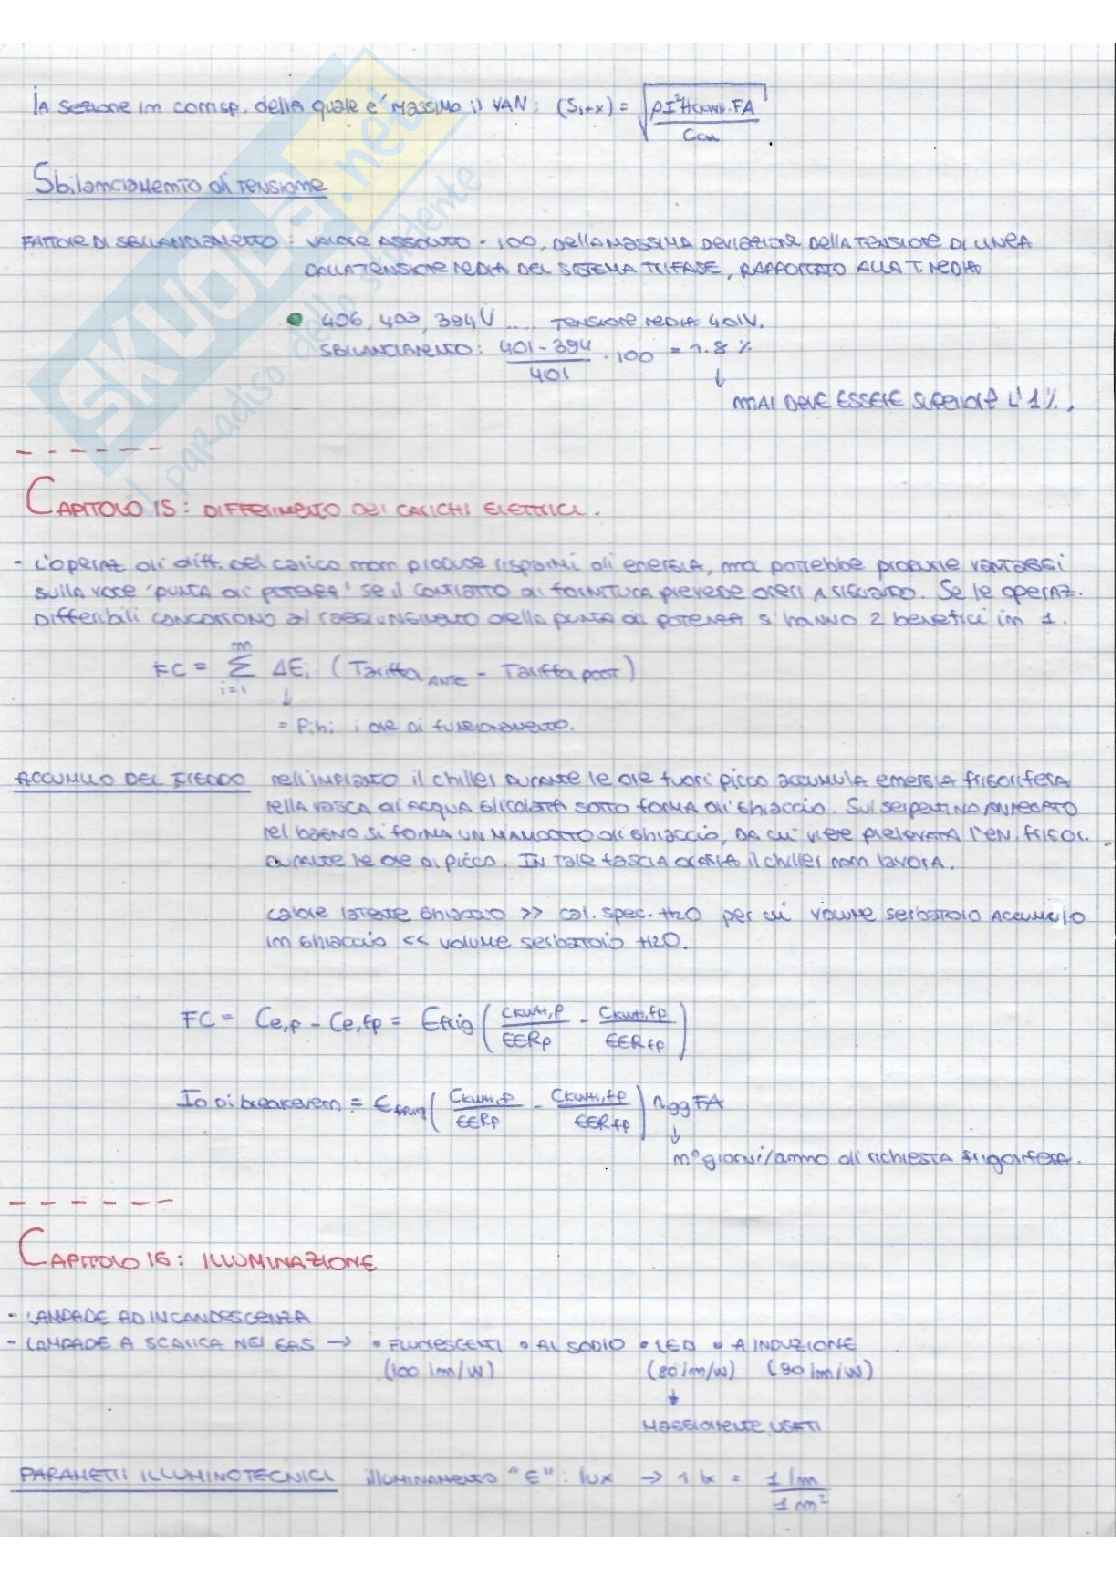 la sezione in corrisp. della quale e' massimo il VAN: (S1+x) = √(ρI²HcкWh.FA / Cca)
Sbilanciamento di tensione
FATTORE DI SBILANCIAMENTO: VALORE ASSOLUTO · 100, DELLA MASSIMA DEVIAZIONE DELLA TENSIONE DI LINEA
DALLA TENSIONE MEDIA DEL SISTEMA TRIFASE, RAPPORTATO ALLA T. MEDIA
406, 403, 394V .... TENSIONE MEDIA 401V.
SBILANCIAMENTO: (401-394)/401 · 100 = 1.8 %
↓
MAI DEVE ESSERE SUPERIORE L'1%.
CAPITOLO 15: DIFFERIMENTO DEI CARICHI ELETTRICI.
- L'operaz di diff. del carico non produce risparmi di energia, ma potrebbe produrre vantaggi
sulla voce 'punta di potenza' se il contratto di fornitura prevede oneri a riguardo. Se le operaz.
differibili concorrono al raggiungimento della punta di potenza si hanno 2 benefici in 1.
FC = Σ(i=1, n) ΔEi (Tariffa ANTE - Tariffa POST)
↓
= Pi hi ; ore di funzionamento.
ACCUMULO DEL FREDDO nell'impianto il chiller durante le ore fuori picco accumula energia frigorifera
nella vasca di acqua glicolata sotto forma di ghiaccio. Sul serpentino annegato
nel bagno si forma un manicotto di ghiaccio, da cui viene prelevata l'en. frigor.
durante le ore di picco. In tale fascia oraria il chiller non lavora.
calore latente ghiaccio >> cal. spec. H2O per cui volume serbatoio accumulo
in ghiaccio << volume serbatoio H2O.
FC = Ce,p - Ce,fp = Efrig (CKWH,P/EERp - CKWH,fp/EERfp)
I0 di breakeven = Efrig (CKWH,P/EERP - CKWH,fp/EERfp) ngg FA
↓
n° giorni/anno di richiesta frigorifera.
CAPITOLO 16: ILLUMINAZIONE
- LAMPADE AD INCANDESCENZA
- LAMPADE A SCARICA NEI GAS → • FLUORESCENTI • AL SODIO • LED • A INDUZIONE
(100 lm/W) (80 lm/W) (90 lm/W)
↓
MAGGIORMENTE USATI
PARAMETRI ILLUMINOTECNICI illuminamento "E": lux → 1 lx = 1 lm/1 m²
SKUOLA.net
il paradiso dello studente